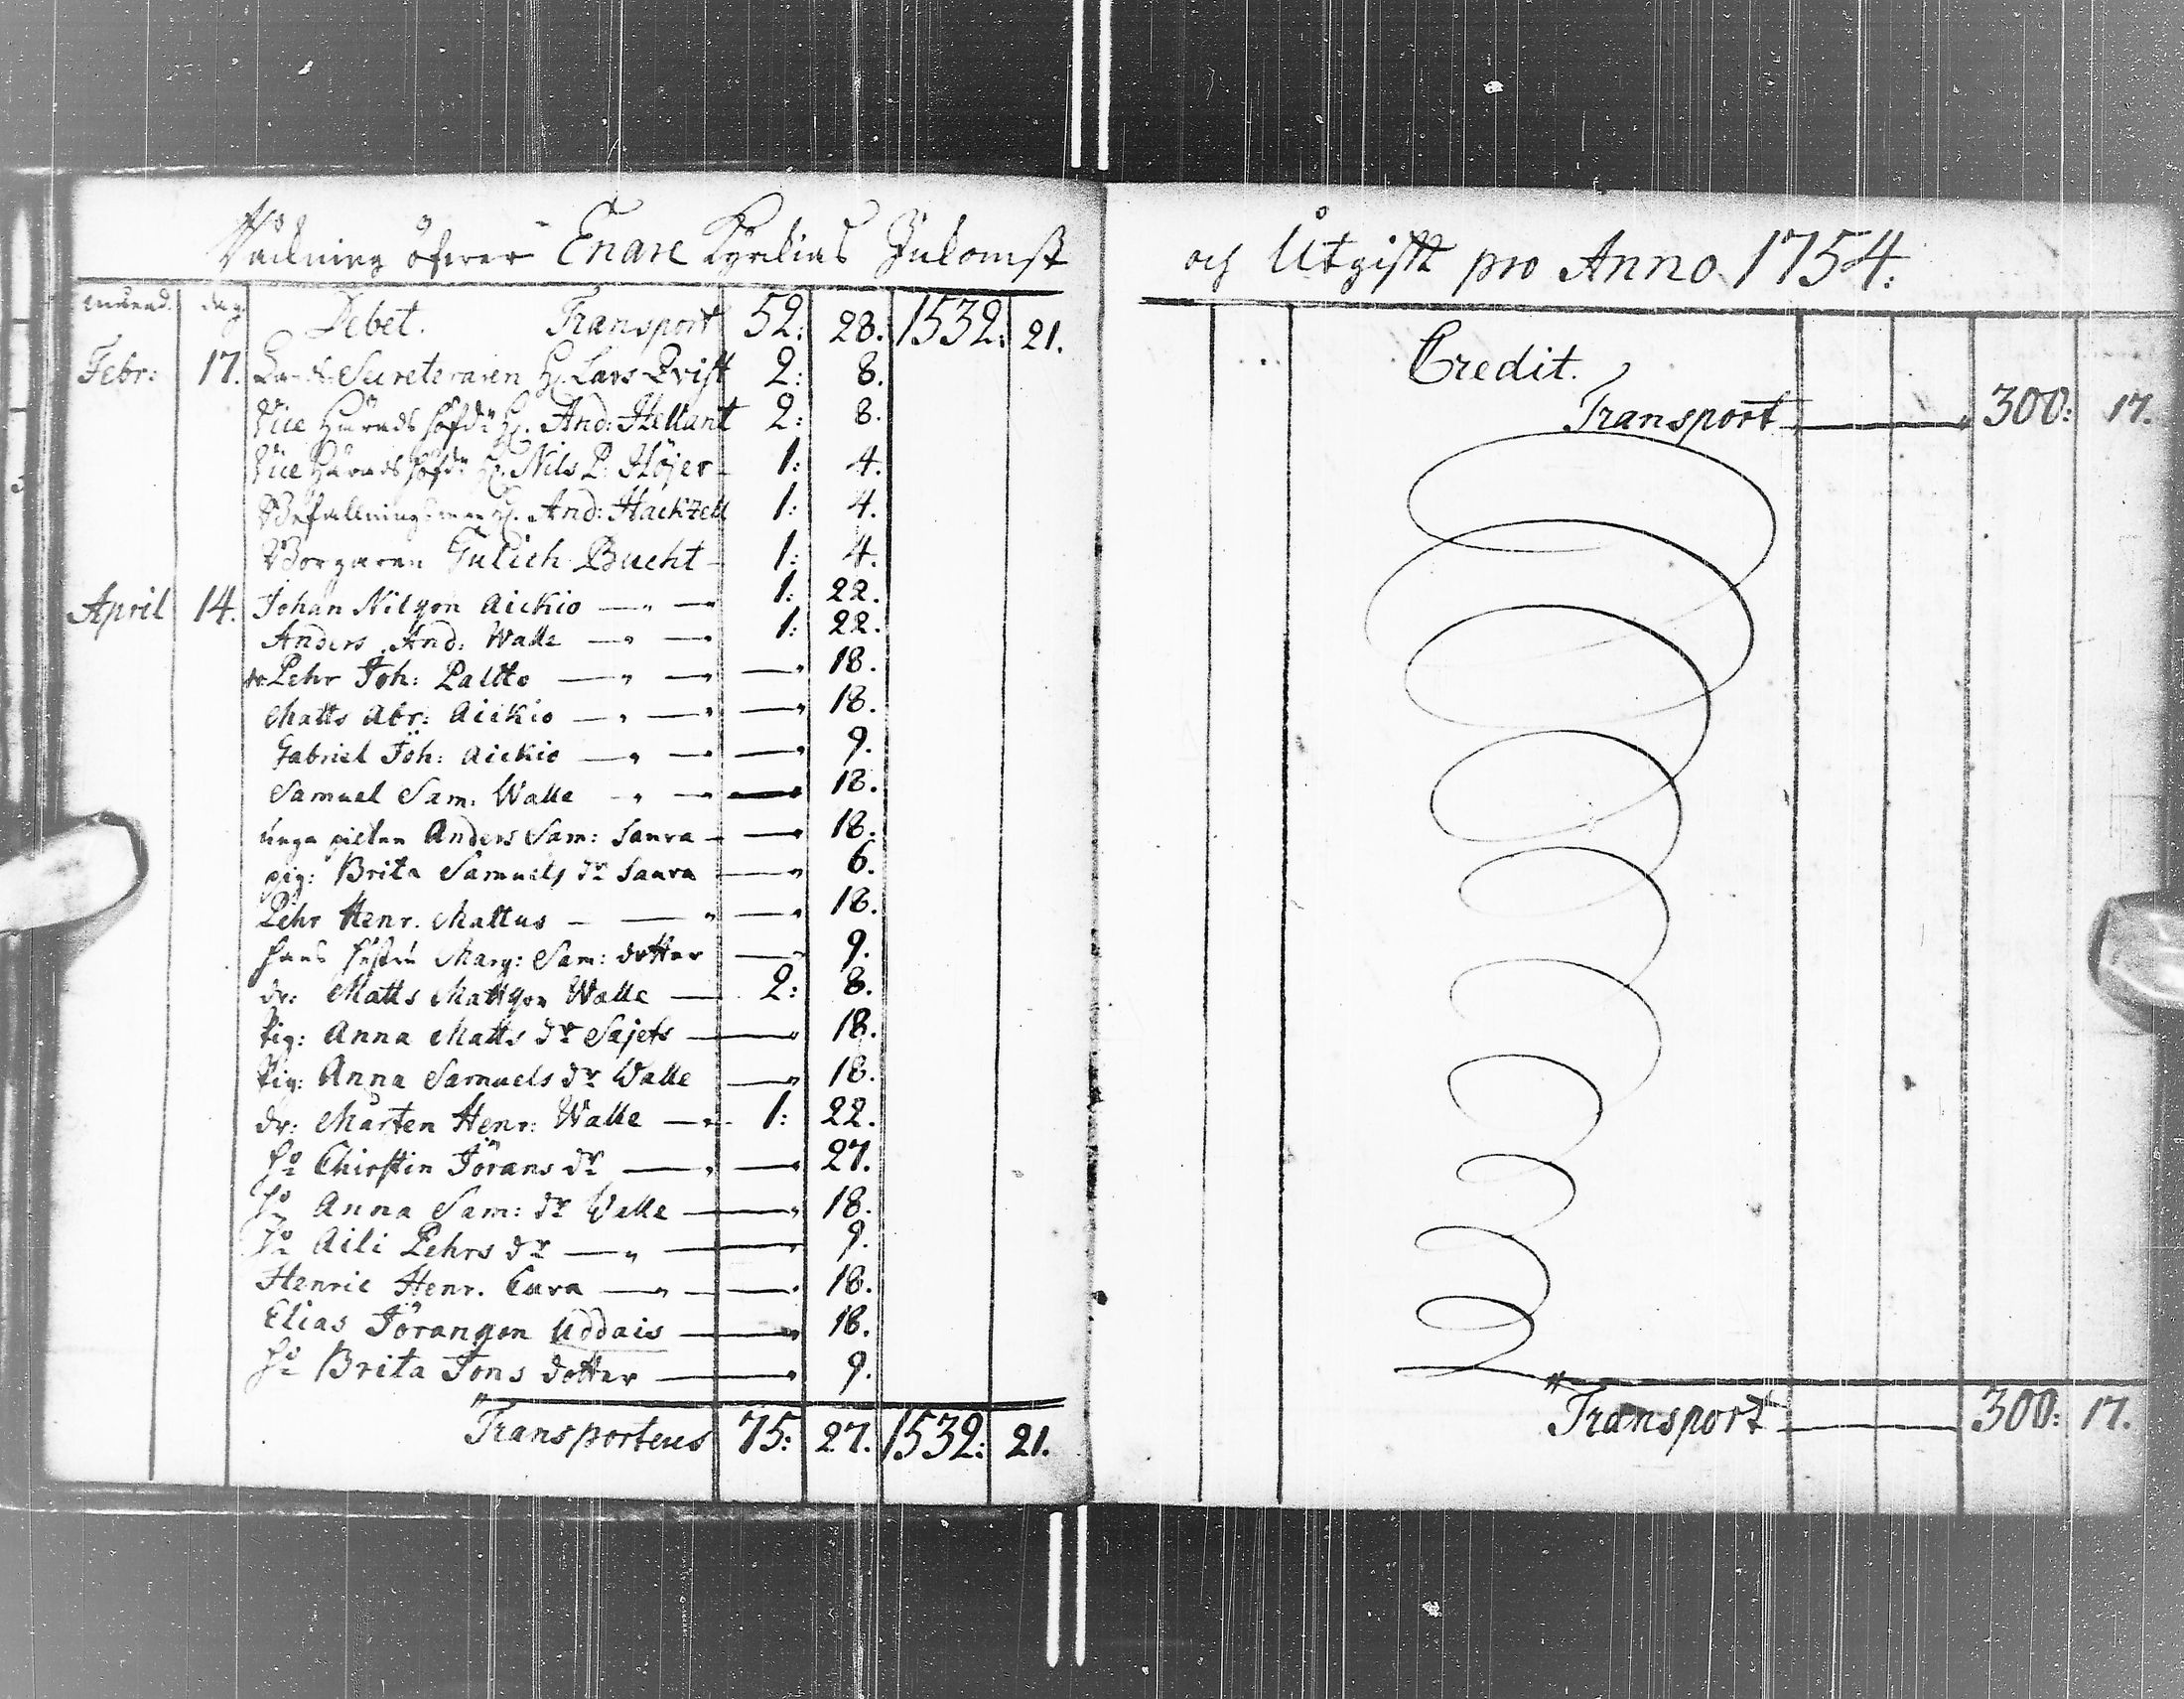 Räkning öfwer Enare Kyrkias Inkomst
månad. dag. Debet. Transport 52: 28. 1532: 21.
Febr: 17. Land Secreteraren H. Lars Qvist 2: 8.
Vice Häradshöfd: H. And: Hellant 2: 8.
Vice Häradshöfd: H. Nils P: Höjer 1: 4.
Befallningsman H. And: Hackzell 1: 4.
Borgaren Gulich Bucht 1: 4.
April 14. Johan Nilsson Aickio 1: 22.
Anders And: Walle 1: 22.
Pehr Joh: Paltto 18.
Matts Abr: Aickio 18.
Gabriel Joh: Aickio 9.
Samuel Sam: Walle 18.
unga pilten Anders Sam: Saura 18.
pig: Brita Samuels dr Saura 6.
Pehr Henr. Mattus 18.
hans hustru Marg: Sam: dotter 9.
dr: Matts Mattsson Walle 2: 8.
Pig: Anna Matts dr Sajets 18.
Pig: Anna Samuels dr Walle 18.
dr: Mårten Henr: Walle 1: 22.
hu Chirstin Jörans dr 27.
hu Anna Sam: dr Walle 18.
hu Aili Pehrs dr 9.
Henric Henr. Cura 18.
Elias Jöransson Uddais 18.
hu Brita Jons dotter 9.
Transporteras 75: 27. 1532: 21.
och Utgifft pro Anno 1754.
Credit.
Transport 300: 17.
Transport 300: 17.